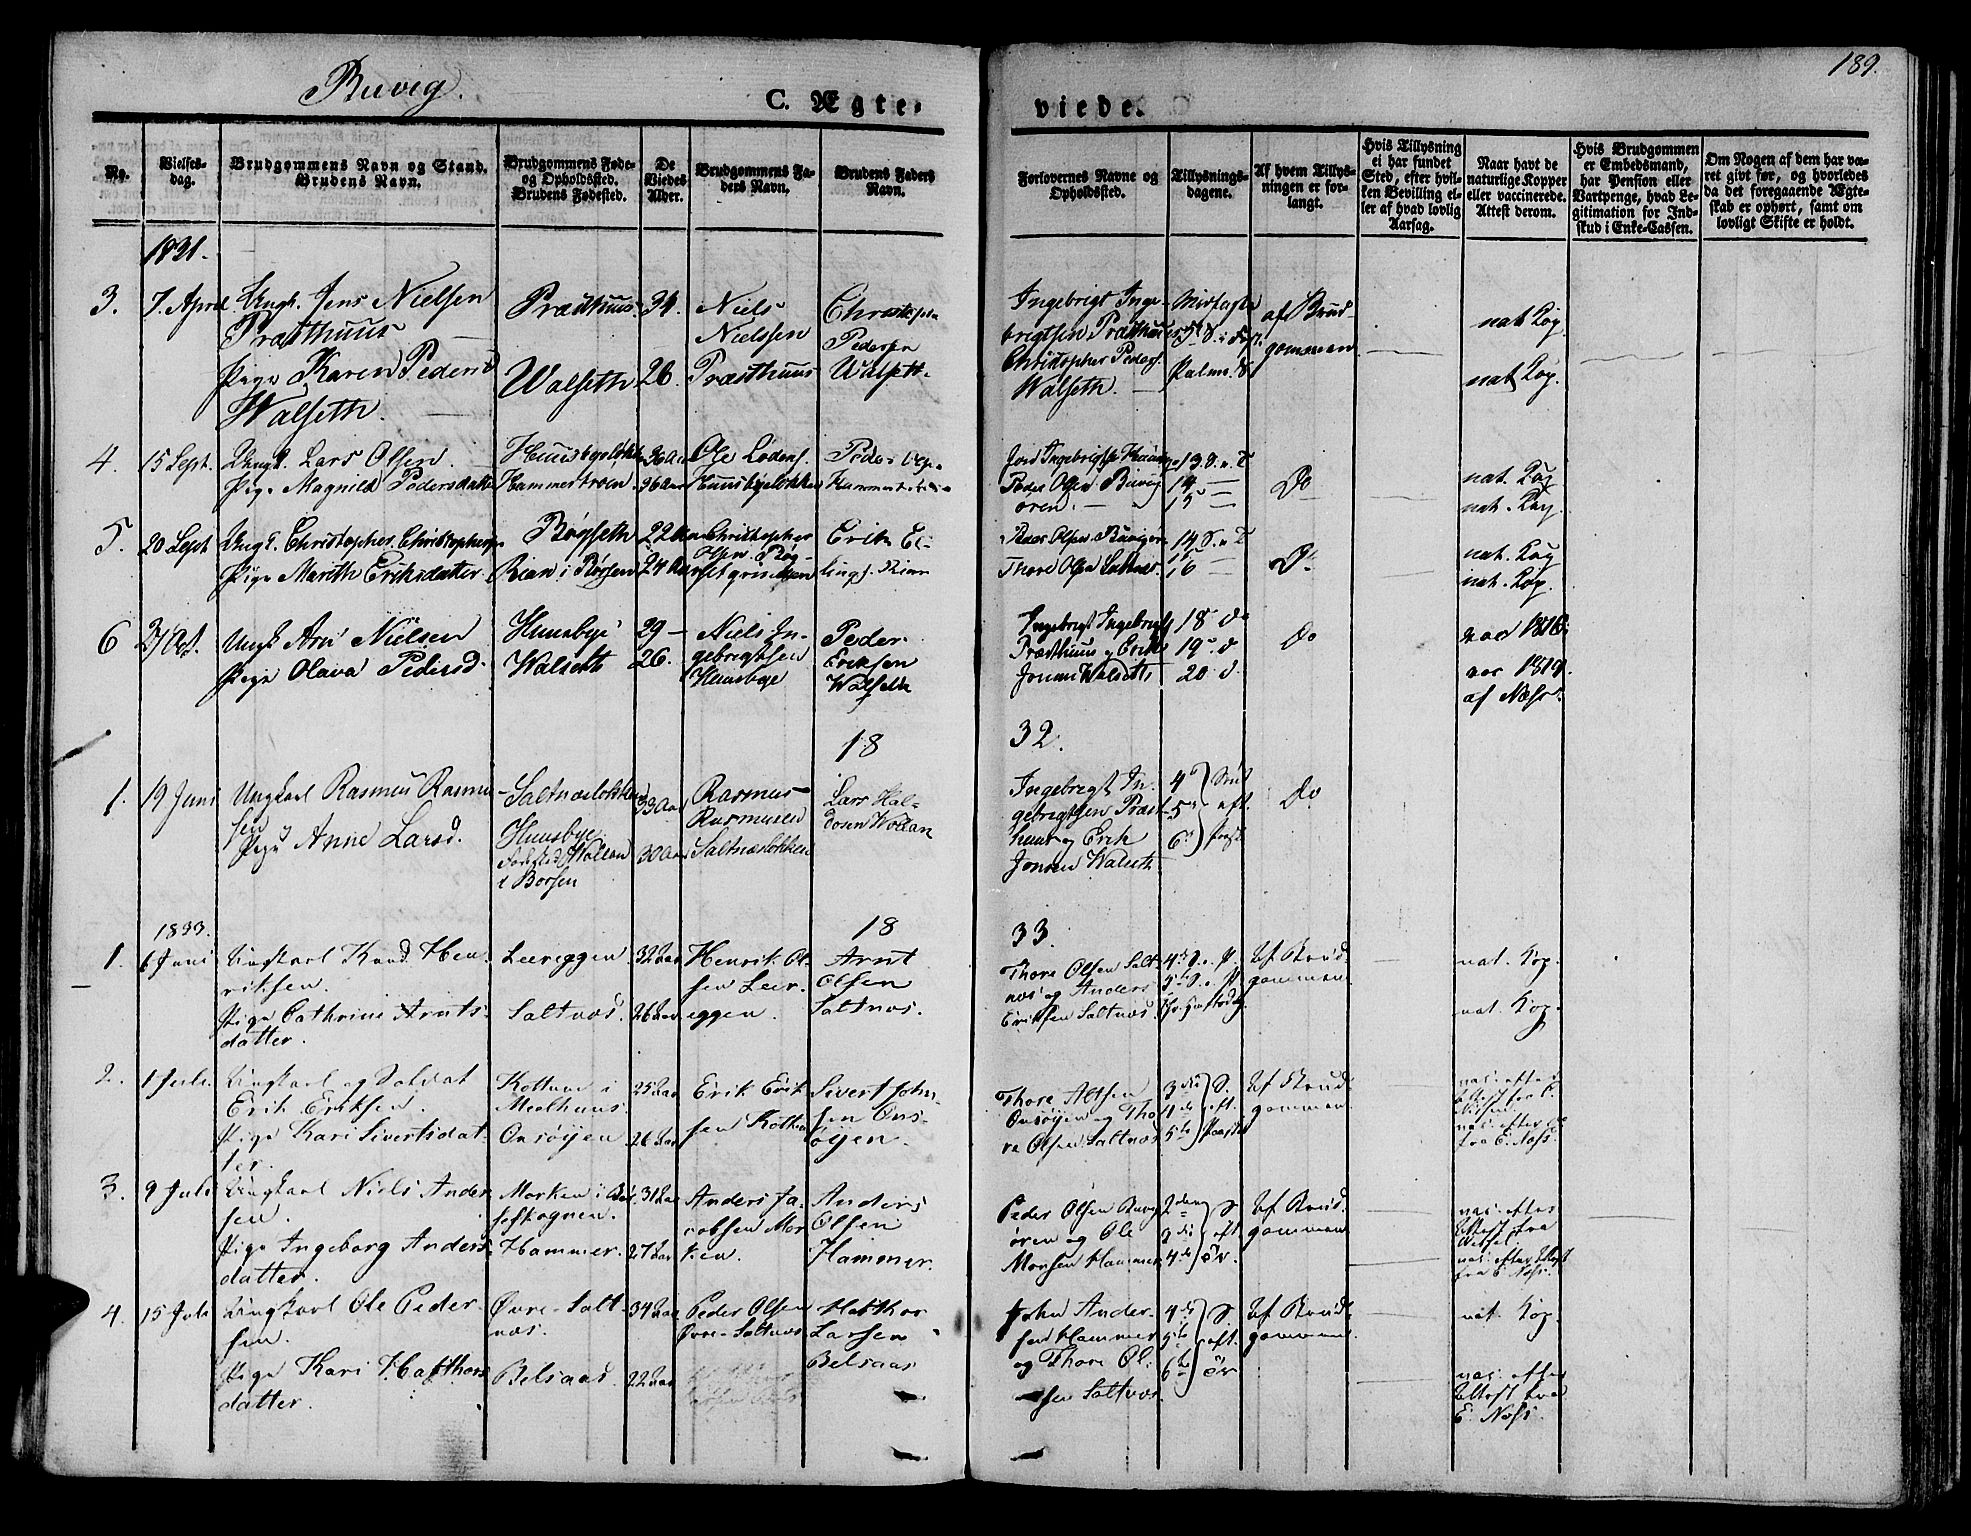 189.
Buvig.
C. Ægte-
viede.
No.
Vielses-
dag.
Brudgommens Navn og Stand.
Brudens Navn.
Brudgommens Føde-
og Opholdssted.
Brudens Fødested.
De
Viedes
Alder.
Brudgommens Fa-
ders Navn.
Brudens Faders
Navn.
Forlovernes Navne og
Opholdssted.
Tillysnings-
dagene.
Af hvem Tillys-
ningen er for-
langt.
Hvis Tillysning
ei har fundet
Sted, efter hvil-
ken Bevilling el-
ler af hvad lovlig
Aarsag.
Naar havt de
naturlige Kopper
eller vaccinerede.
Attest derom.
Hvis Brudgommen
er Embedsmand,
har Pension eller
Vartpenge, hvad Le-
gitimation for Ind-
skud i Enke-Cassen.
Om Nogen af dem har væ-
ret givt før, og hvorledes
da det foregaaende Ægte-
skab er ophørt, samt om
lovligt Skifte er holdt.
1831.
3. 7. April
Ungk. Jens Nielsen
Præsthuus
Pige Karen Pedersd
Walseth.
Præsthuus
Walseth
31.
26.
Niels
Nielssen
Præsthuus
Christopher
Pedersen
Walseth.
Ingebrigt Inge-
brigtsen Præsthuus
Christopher Peders.
Walseth.
Midfaste
Palm. S
af Brud
gommen
nat Kop.
nat Kop.
4. 15 Sept.
Ungk. Lars Olsen
Pige Magnild Pedersdatter
Huusbyeløkken
Hammerstrøen
Ole Lodens.
Huusbyeløkken
Peder
Peder Olsen Buvig
øren.
13 S. n. T
14 —
15 —
Do
nat. Kop
nat. Kop.
5. 20 Sept
Ungk. Christopher Christophersen
Pige Marith Eriksdatter
Bøgseth
Rian i Børsen
22
24
Christopher
Olsen Bøg-
Erik El-
lings. Rian
Peder Olsen Buvigør
Thore Olsen Saltnes.
14 S. n. T
15 —
16
Do
nat. Kop
nat. Kop.
6 31 Oct.
Ungk Arn Nielsen
Pige Olava Pedersd.
Huusbye
Walseth
29 —
26.
Niels In-
gebrigtsen
Huusbye
Peder
Eriksen
Walseth
Ingebrigt Ingebrigts
Præsthuus og Erik
Jonsen Walseth
18 do
19 d
20. d.
Do
vac 1818.
vac 1819.
af Næss.
18
32.
1. 19 Juni
Ungkarl Rasmus Rasmu
sen
Pige Anne Larsd.
Saltnæsløkken
Huusbye
Fødested Wollan
i Børsen
33 Aar
30 Aar
Rasmus
Rasmusen
Saltnæsløkken
Lars Hal-
dosen Wollan
Ingebrigt In-
gebrigtsen Præst-
huus og Erik
Jonsen Walseth
4
5
6
Do
1833.
18
33.
1. 6 Juni
Ungkarl Knud Hen-
riksen.
Pige Cathrine Arnts-
datter.
Leereggen
Saltnæs.
32 Aar
26 Aar
Henrik Ol-
sen Leer-
eggen.
Arnt
Olsen
Saltnæs.
Thore Olsen Salt-
næs og Anders
Eriksen Saltnæs
Af Brud-
gommen.
nat. Kop.
nat. Kop.
2. 1 Juli
Ungkarl og Soldat
Erik Eriksen.
Pige Kari Sivertsdat-
ter.
Kottum i
Meelhuus.
Onsöyen
25 Aar
26 Aar
Erik Erik
sen
Sivert John-
sen Ons-
öyen.
Thore Altsen
Onsöyen og Tho-
re Olsen Saltnæs
Af Brud-
gommen.
3. 9 Juli
Ungkarl Niels Ander
sen.
Pige Ingeborg Anders-
datter.
Morken i Bør-
seskognen.
Hammer.
31 Aar
27 Aar
Anders Ja-
cobsen Mor-
ken.
Anders
Olsen
Hammer.
Peder Olsen Buvig
ören og Ole
Morsen Hammer
Af Brud-
gommen
4. 15 Juli
Ungkarl Ole Peder-
sen.
Pige Kari Hafthors
datter.
Øvre-Salt-
næs.
Belsaas.
34 Aar
22 Aar
Peder Olsen
Øvre-Saltnæs
Hafthor
Larsen
Belsaas
John Ander-
sen Hammer
og Thore Ol-
sen Saltnæs.
Af Brud-
gommen
nat. Kop.
vac. efter
Attest fra
E. Næss.